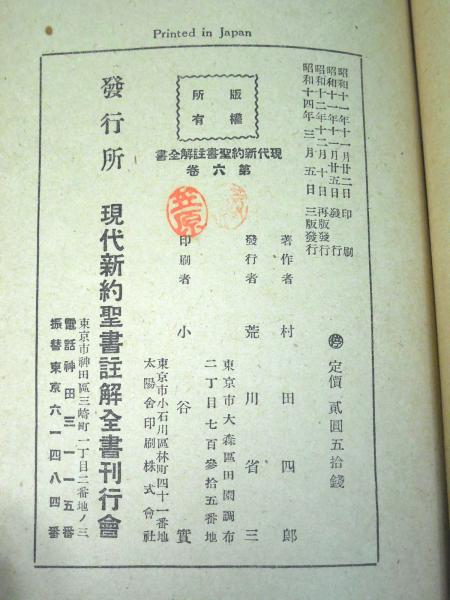 Printed in Japan
昭和十一年十一月廿二日 印刷
昭和十一年十一月廿五日 發行
昭和十二年十二月十日 再版發行
昭和十四年三月五日 三版發行
㊞停 定價 貳圓五拾錢
版權
所有
現代新約聖書註解全書
第六卷
笠原
著作者 村田四郎
東京市大森區田園調布
二丁目七百參拾五番地
發行者 荒川省三
東京市小石川區林町四十一番地
太陽舍印刷株式會社
印刷者 小谷實
發行所 現代新約聖書註解全書刊行會
東京市神田區三崎町一丁目二番地ノ三
電話神田三一一五番
振替東京六一四八四番